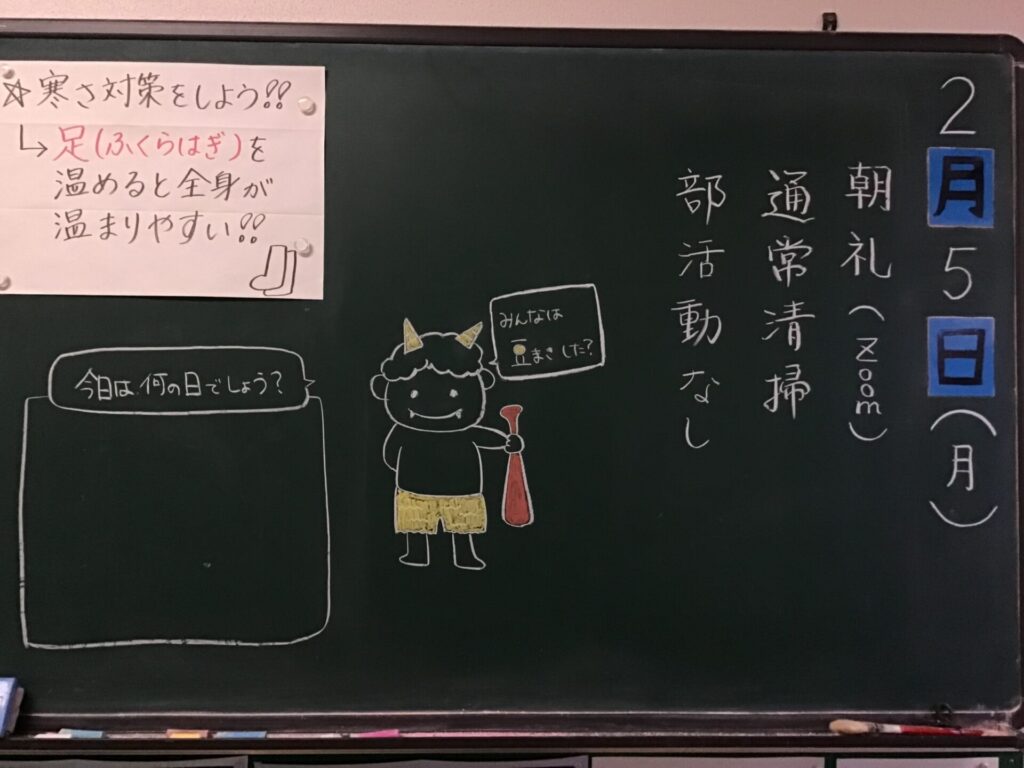 2月5日(月)
朝礼(Zoom)
通常清掃
部活動なし
☆寒さ対策をしよう!!
↳足(ふくらはぎ)を
温めると全身が
温まりやすい!!
みんなは
豆まきした?
今日は何の日でしょう?